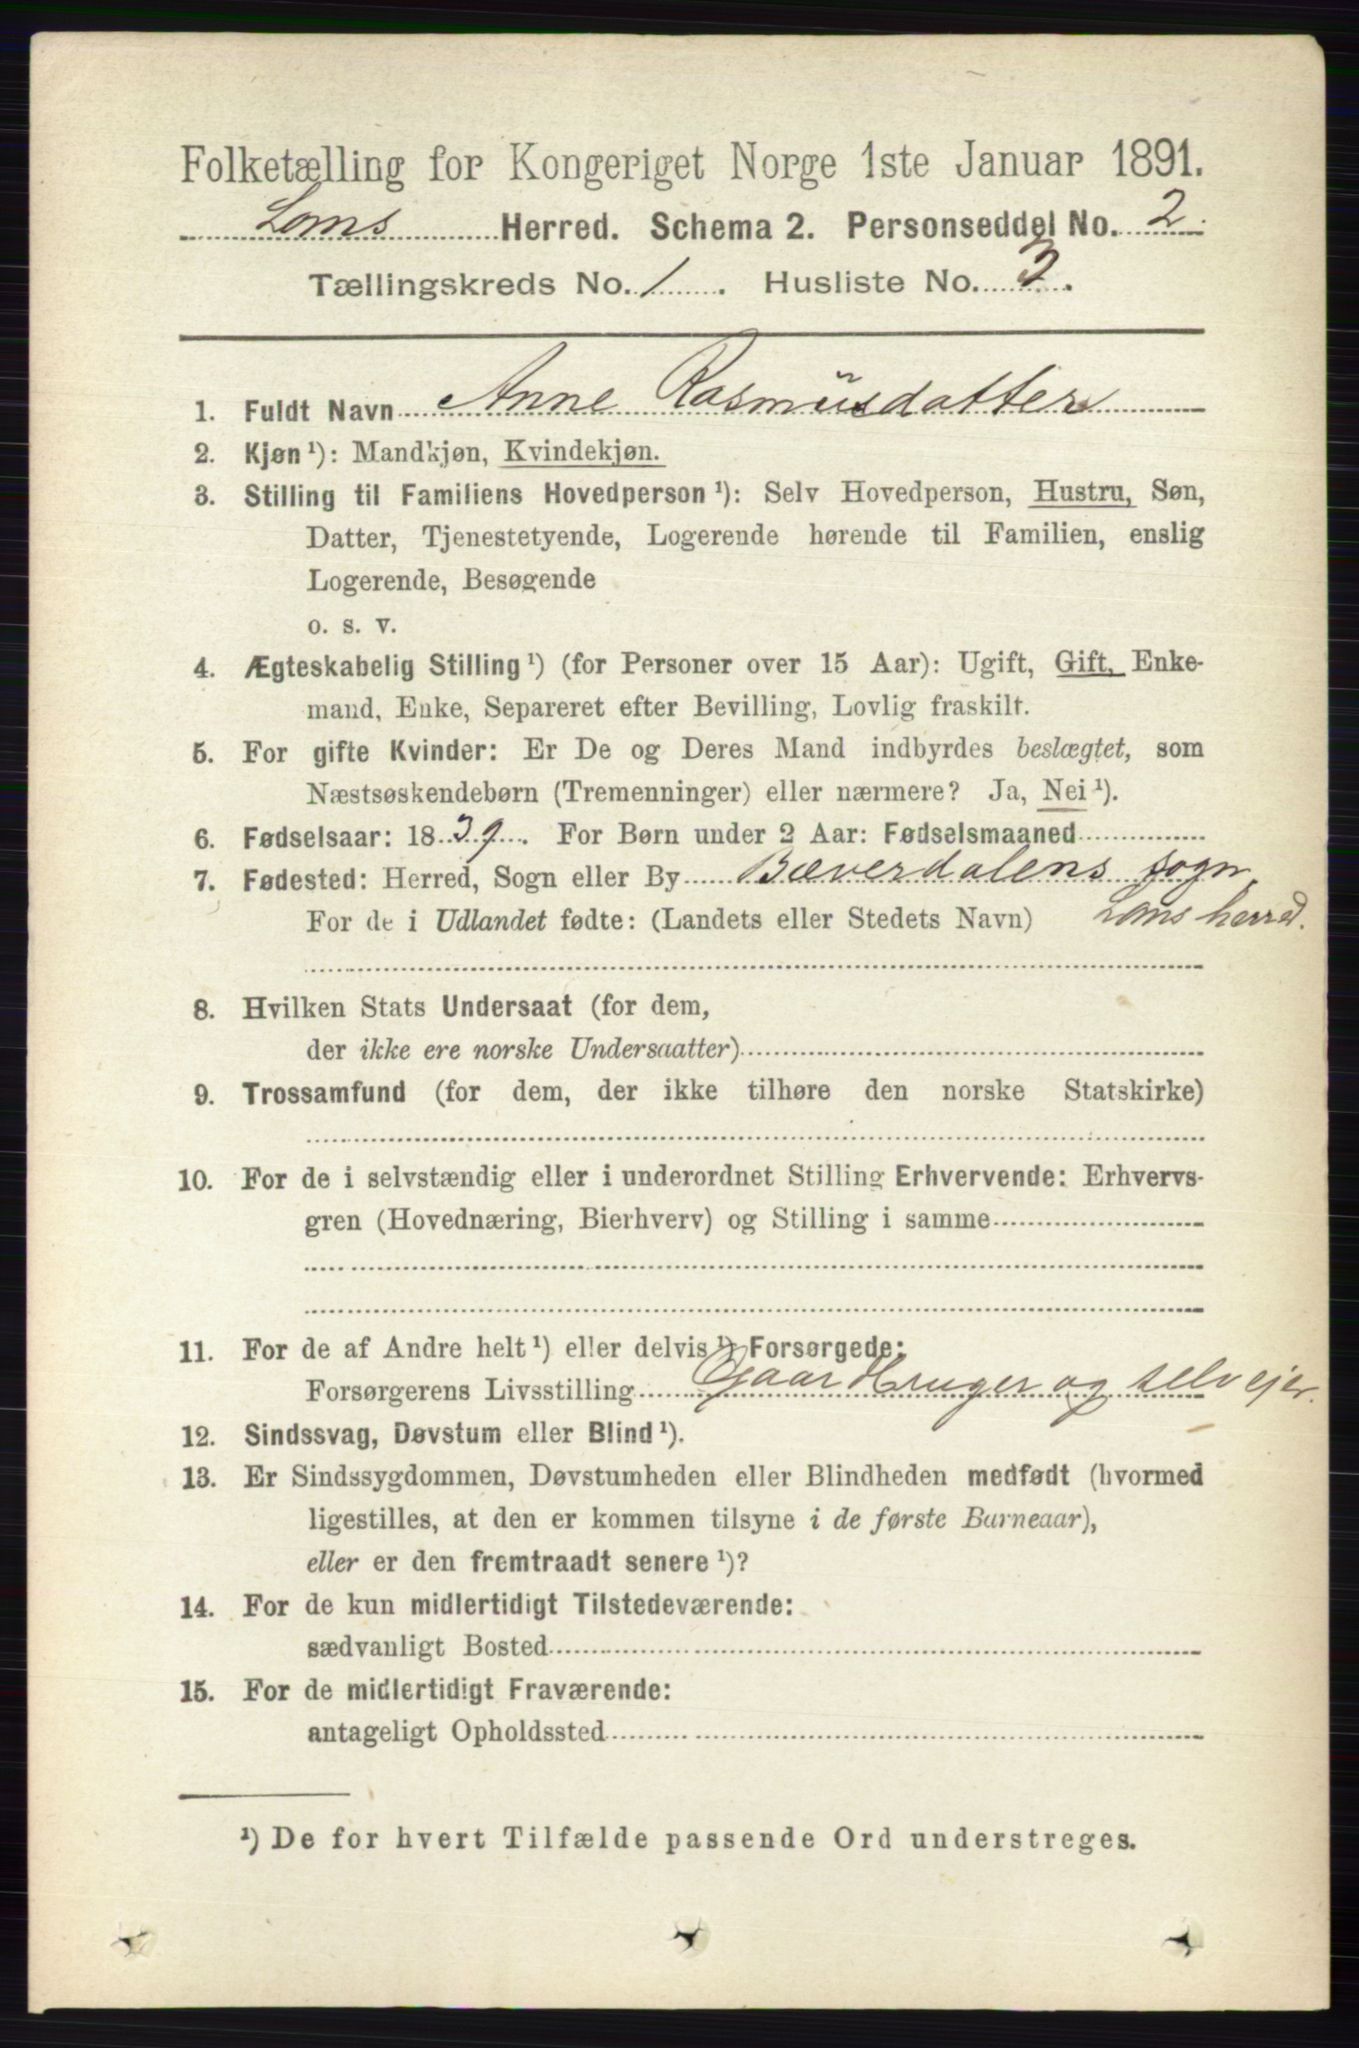 Folketælling for Kongeriget Norge 1ste Januar 1891.
Loms Herred. Schema 2. Personseddel No. 2.
Tællingskreds No. 1. Husliste No. 3.
1. Fuldt Navn Anne Rasmusdatter
2. Kjøn ¹): Mandkjøn, Kvindekjøn.
3. Stilling til Familiens Hovedperson ¹): Selv Hovedperson, Hustru, Søn,
Datter, Tjenestetyende, Logerende hørende til Familien, enslig
Logerende, Besøgende
o. s. v.
4. Ægteskabelig Stilling ¹) (for Personer over 15 Aar): Ugift, Gift, Enke-
mand, Enke, Separeret efter Bevilling, Lovlig fraskilt.
5. For gifte Kvinder: Er De og Deres Mand indbyrdes beslægtet, som
Næstsøskendebørn (Tremenninger) eller nærmere? Ja, Nei ¹).
6. Fødselsaar: 1839. For Børn under 2 Aar: Fødselsmaaned
7. Fødested: Herred, Sogn eller By Bæverdalens sogn,
For de i Udlandet fødte: (Landets eller Stedets Navn) Loms herred.
8. Hvilken Stats Undersaat (for dem,
der ikke ere norske Undersaatter)
9. Trossamfund (for dem, der ikke tilhøre den norske Statskirke)
10. For de i selvstændig eller i underordnet Stilling Erhvervende: Erhvervs-
gren (Hovednæring, Bierhverv) og Stilling i samme
11. For de af Andre helt ¹) eller delvis ¹) Forsørgede:
Forsørgerens Livsstilling Gaardbruger og selvejer.
12. Sindssvag, Døvstum eller Blind ¹).
13. Er Sindssygdommen, Døvstumheden eller Blindheden medfødt (hvormed
ligestilles, at den er kommen tilsyne i de første Barneaar),
eller er den fremtraadt senere ¹)?
14. For de kun midlertidigt Tilstedeværende:
sædvanligt Bosted
15. For de midlertidigt Fraværende:
antageligt Opholdssted
¹) De for hvert Tilfælde passende Ord understreges.